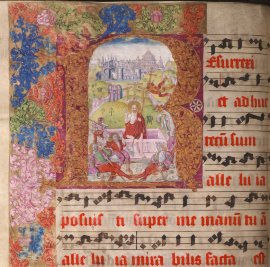 R
esurrexi
et adhuc
tecū sum
alle lu ia
posuis ti super me manū tu ā
alle lu ia mira bilis facta est